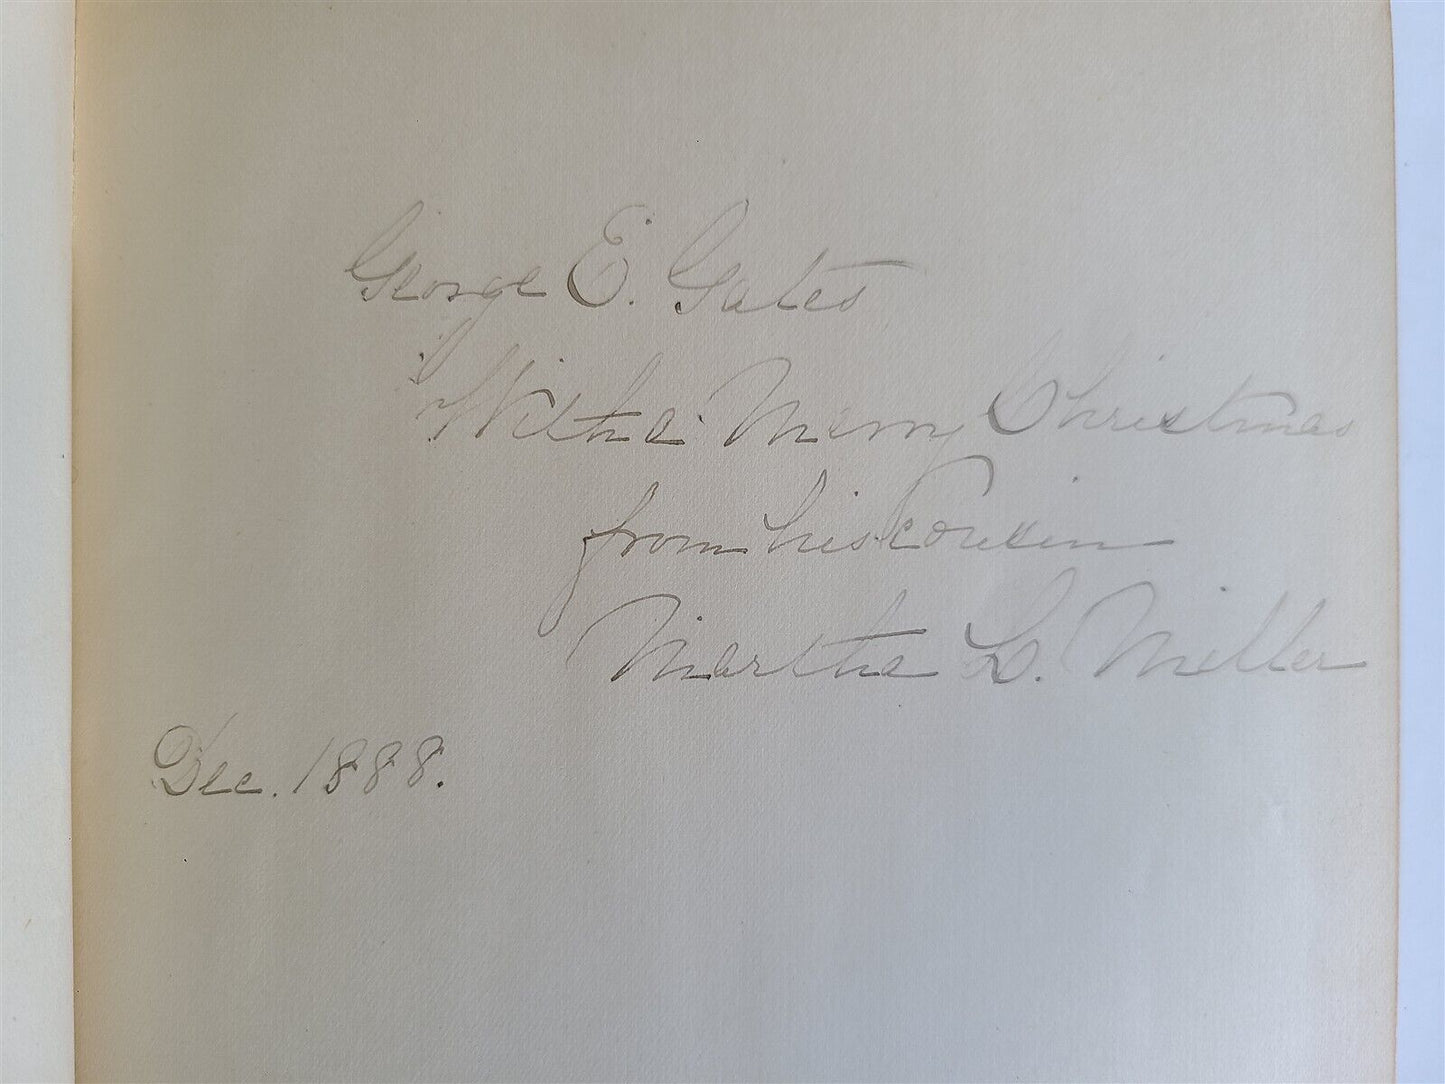 George E. Gates
With a Merry Christmas
from his Cousin
Martha L. Miller
Dec. 1888.